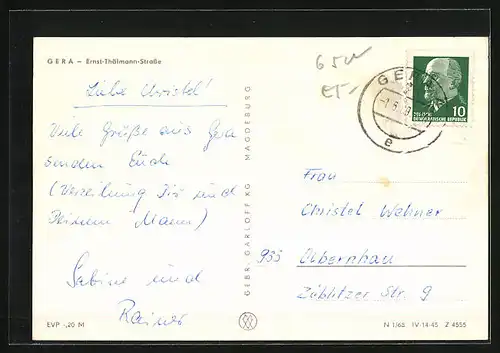 GERA – Ernst-Thälmann-Straße
Liebe Christel!
Viele Grüße aus Gera
senden Euch
(Verzeihung Dir und
Deinem Mann)
Sabine und
Rainer
EVP -,20 M
GEBR. GARLOFF KG MAGDEBURG
GERA
e
10
DEUTSCHE
DEMOKRATISCHE REPUBLIK
Frau
Christel Wehner
933 Olbernhau
Zöblitzer Str. 9
N 1/65 IV-14-45 Z 4555